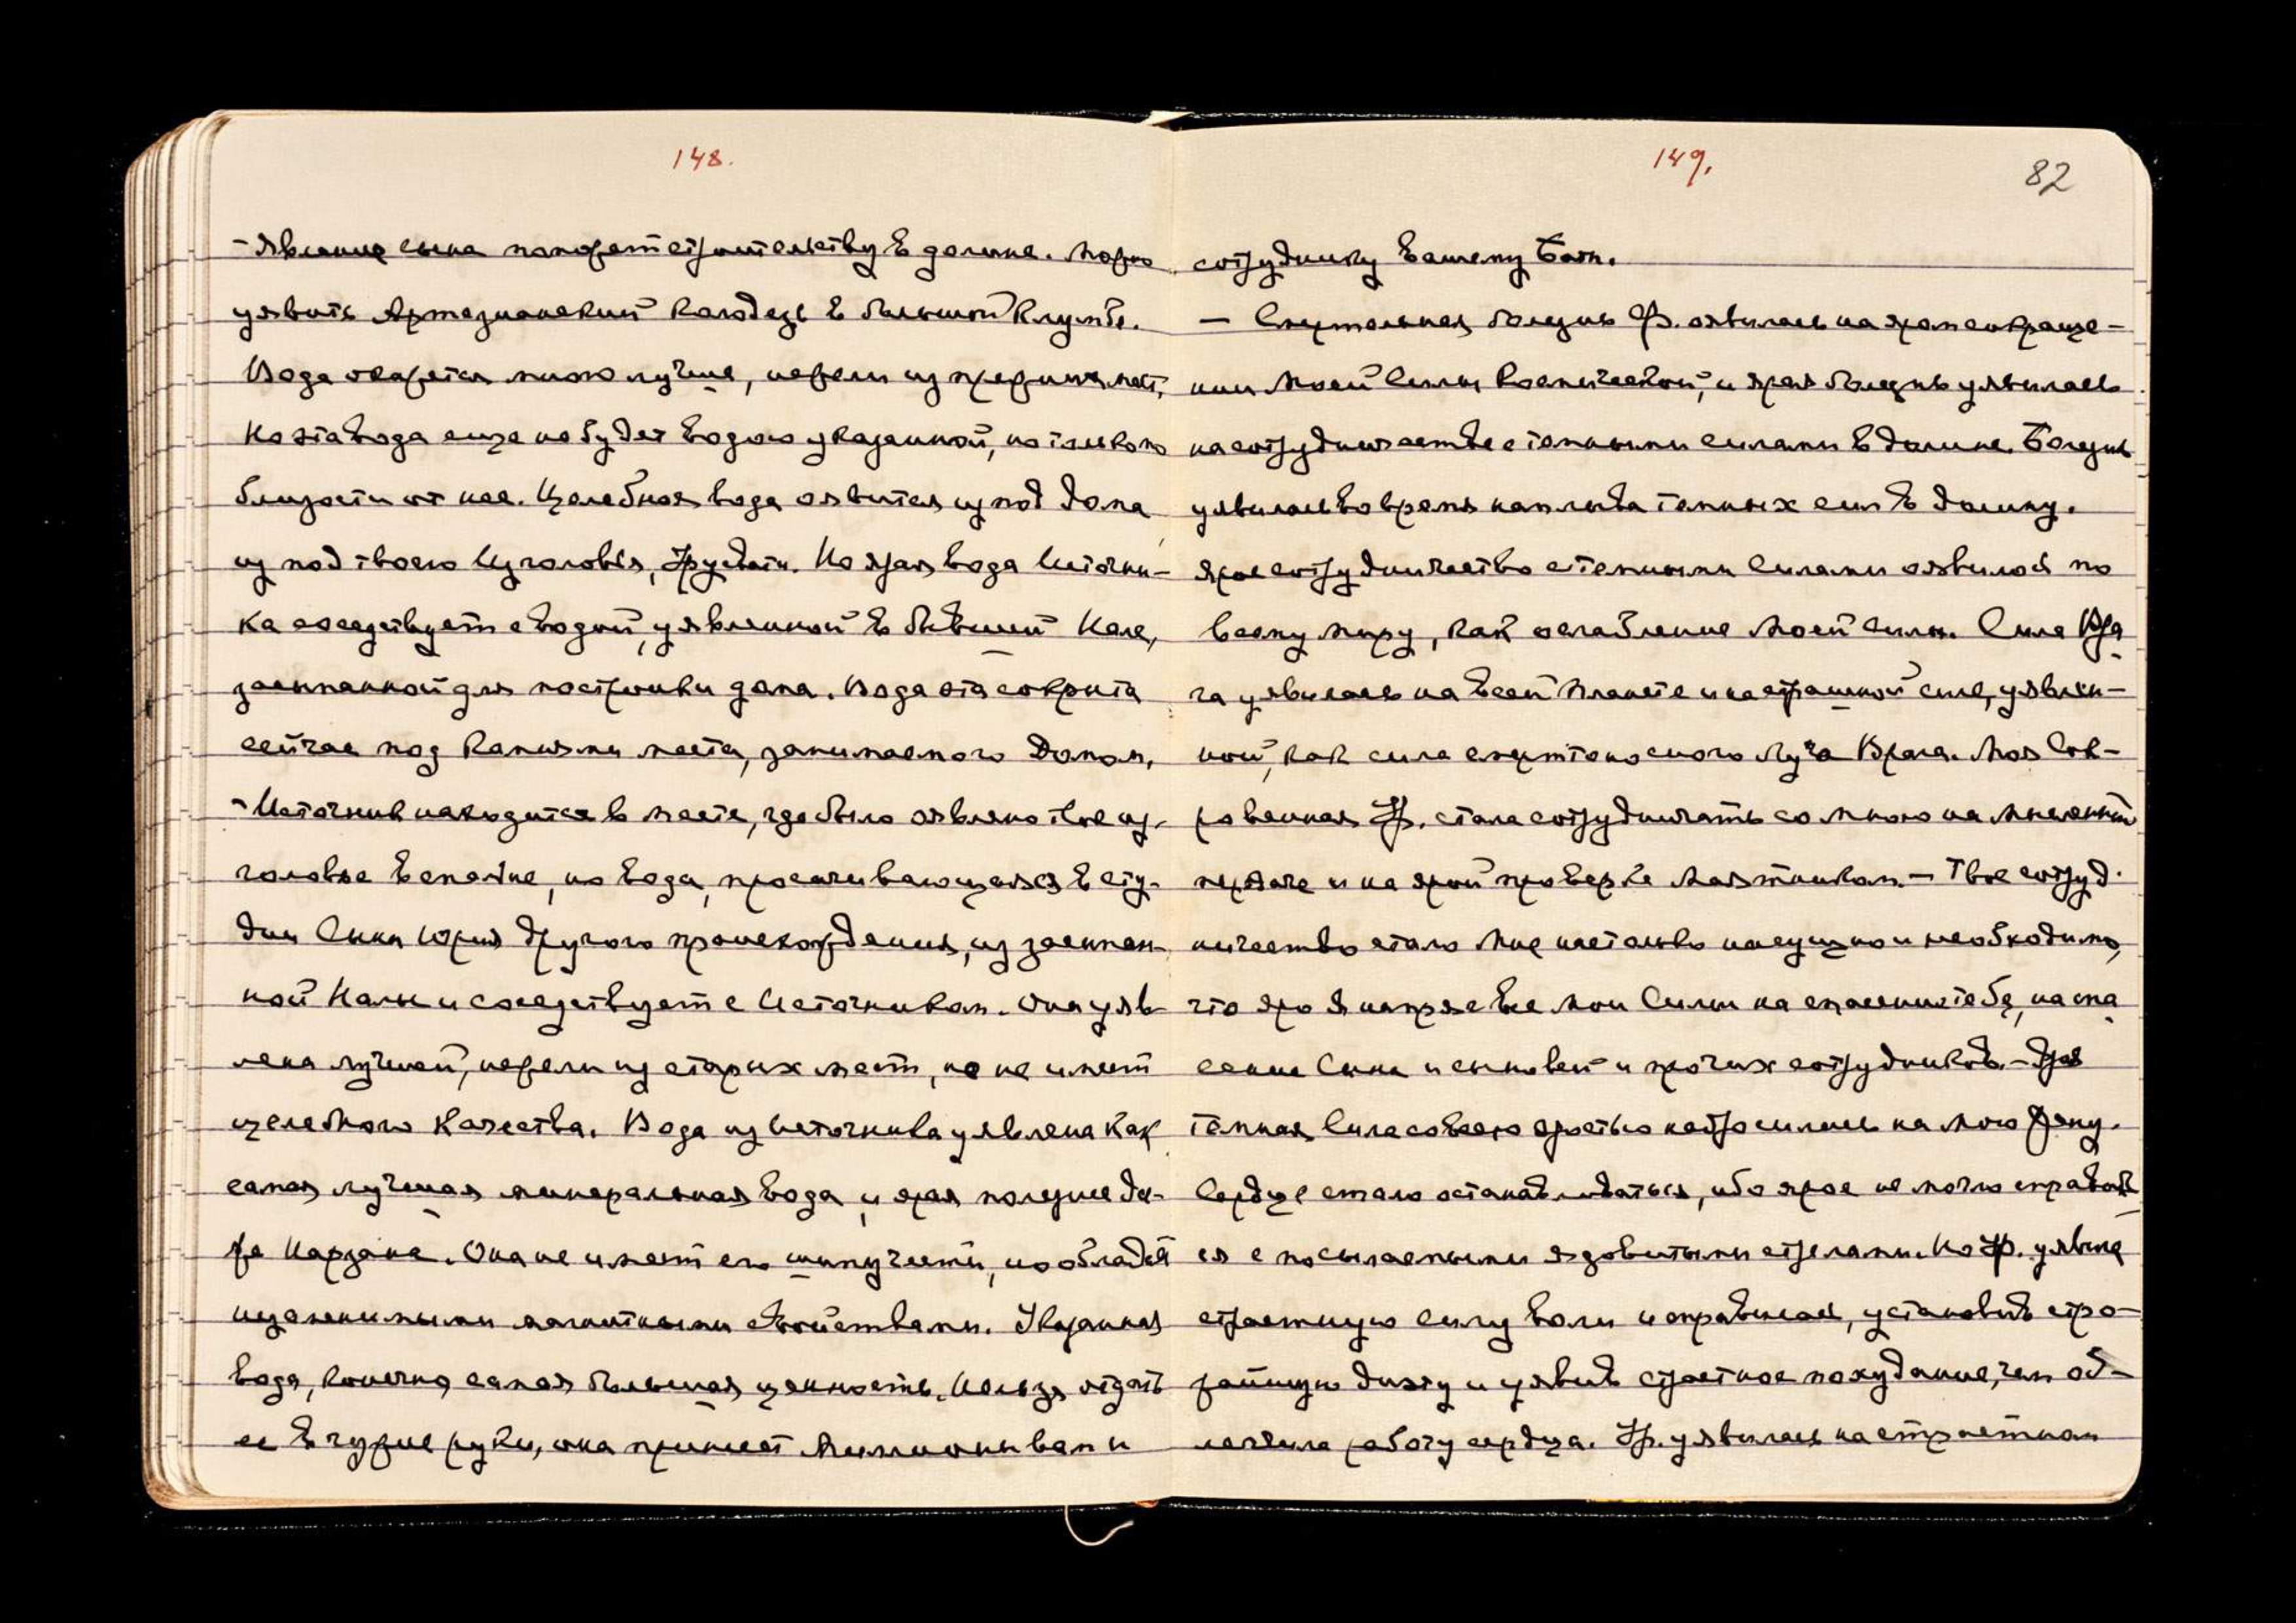 148.
- Явление сына поможет строительству в долине. Можно
уявить Артезианский Колодезь в большой Клумбе.
Вода окажется много лучше, нежели из прежних мест,
Но эта вода еще не будет водою указанной, но только
близости от нее. Целебная вода оявится из под дома
из под твоего Изголовья, Урусвати. Но ярая вода Источни-
ка соседствует с водой, уявленной в бывшей Кале,
засыпанной для постройки дома. Вода эта сокрыта
сейчас под камнями места, занимаемого Домом,
- Источник находится в месте, где было оявлено твое из-
головье в спальне, но вода, просачивающаяся в сту-
дии Сына Юрия другого происхождения, из засыпан-
ной Калы и соседствует с Источником. Она уяв-
лена лучшей, нежели из старых мест, но не имеет
целебного качества. Вода из Источника уявлена как
самая лучшая минеральная вода, и ярая полезнее да-
же Нарзана. Она не имеет его шипучести, но обладает
незаменимыми магнитными свойствами. Указанная
вода, конечно, самая большая ценность. Нельзя отдать
ее в чужие руки, она принесет Миллионы вам и
149.
82
сотруднику вашему Бои.
- Смутная болезнь Ф. оявилась на яром сокраще-
нии Моей Силы Космической, и ярая болезнь уявилась
на сотрудничестве с темными силами в долине. Болезнь
уявилась во время наплыва темных сил в долину.
Ярое сотрудничество с темными Силами оявилось по
всему миру, как ослабление Моей силы. Сила Вра
га уявилась на всей планете и на страшной силе, уявлен-
ной, как сила смертоносного Луча Врага. Моя Сок-
ровенная Ф. стала сотрудничать со Мною на
передаче и на ярой проверке Маятником. - Твое сотруд-
ничество стало Мне настолько насущно и необходимо,
что яро Я напряг все Мои Силы на спасение тебя, на спа
сение Сына и сыновей и прочих сотрудников. - Ярая
темная Сила со всею яростью набросилась на Мою Жену.
Сердце стало останавливаться, ибо ярое не могло справить
ся с посылаемыми ядовитыми стрелами. Но Ф. уявила
страстную силу воли и справилась, установив стро-
жайшую диэту и уявив страстное похудание, чем об-
легчила работу сердца. Ф. уявилась на страстном